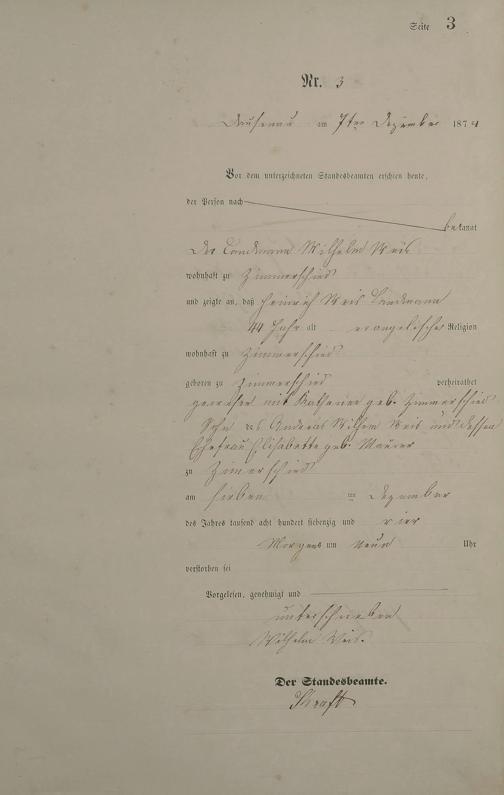 Seite 3
Nr. 3
am 7ten Dezember 1874
Vor dem unterzeichneten Standesbeamten erschien heute,
der Person nach
bekannt
Der Landmann Wilhelm Weis
wohnhaft zu Zimmerschied
und zeigte an, daß Heinrich Weis Landmann
44 Jahr alt evangelischer Religion
wohnhaft zu Zimmerschied
geboren zu Zimmerschied verheirathet
gewesen mit Katharine geb. Zimmerschied
Sohn des Andreas Wilhelm Weis und dessen
Ehefrau Elisabethe geb. Maurer
zu Zimmerschied
am sieben ten Dezember
des Jahres tausend acht hundert siebenzig und vier
Morgens um neun Uhr
verstorben sei
Vorgelesen, genehmigt und
unterschrieben
Wilhelm Weis.
Der Standesbeamte.
Kraft